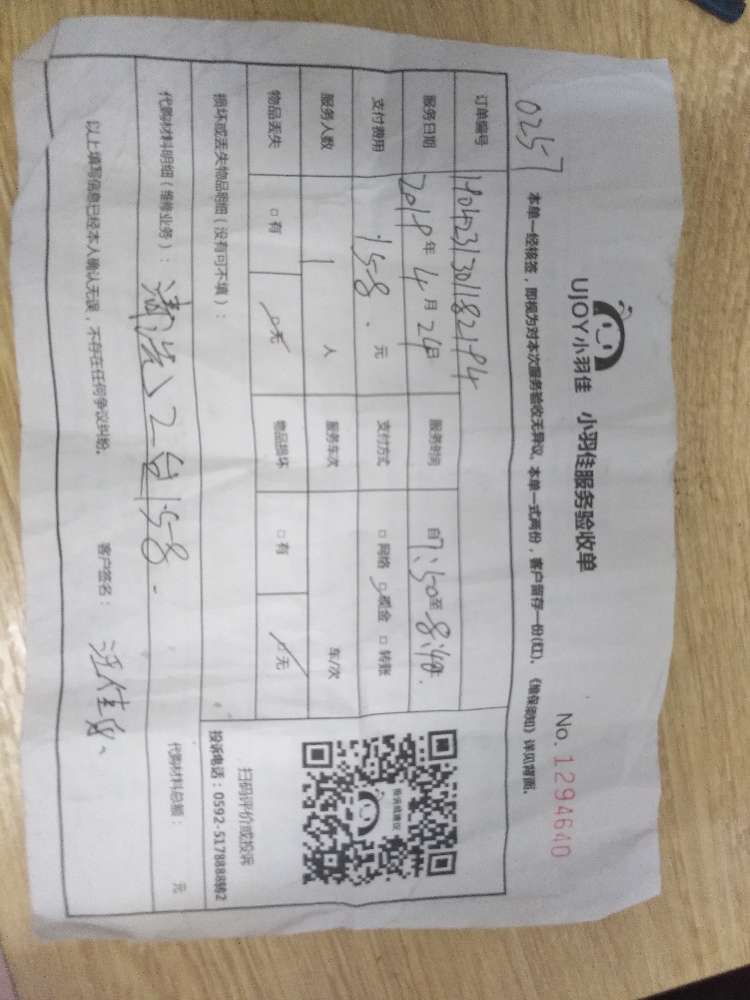 UJOY小羽佳 小羽佳服务验收单
No. 1294640
0257
本单一经核签，即视为对本次服务验收无异议。本单一式两份，客户留存一份(红)。《维保须知》详见背面。
订单编号
服务日期 2018年4月24日 服务时间 自7:50至8:40
支付费用 158.元 支付方式 □网络 □现金 □转账
服务人数 1人 服务车次 车/次
物品丢失 □有 □无 物品损坏 □有 □无
损坏或丢失物品明细（没有可不填）：
扫码评价或投诉
投诉电话：0592-5178888转2
代购材料明细（维修业务）： 2台158.
代购材料总额： 元
以上填写信息已经本人确认无误，不存在任何争议纠纷。 客户签名：